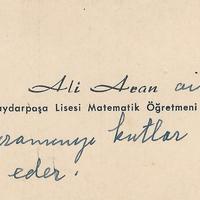 Ali Aran
aydarpaşa Lisesi Matematik Öğretmeni
kutlar
eder.